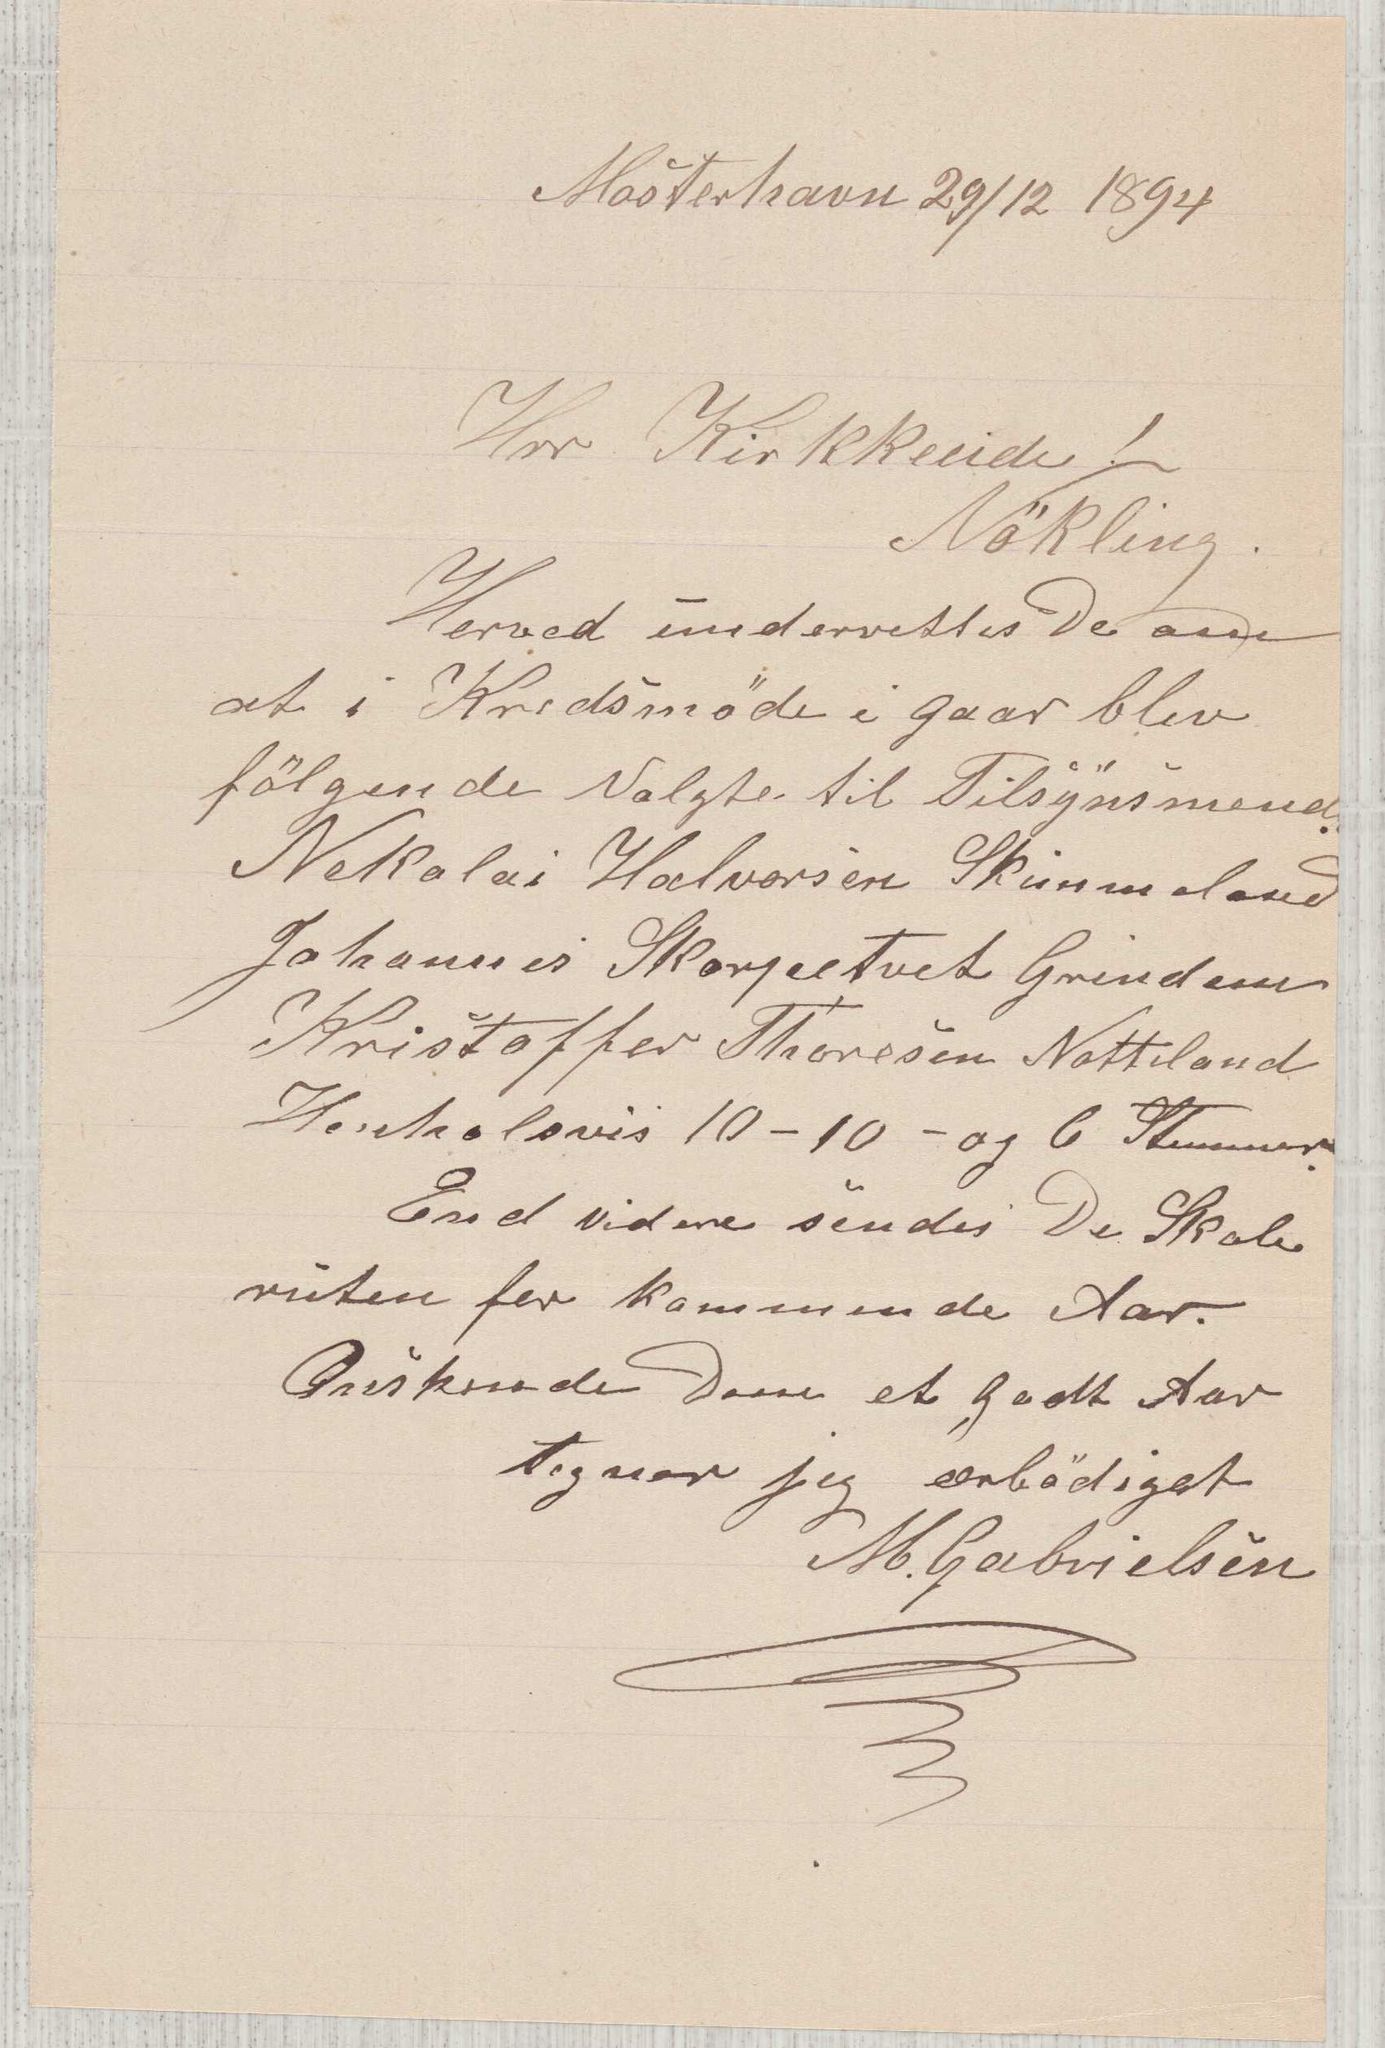 Mosterhavn 29/12 1894
Hrr Kirkkeeide!
Nökling.
Herved underrettes De om
at i Kredsmöde i gaar blev
fölgende Valgte til Tilsynsmend.
Nekolai Halvorsen Skimmeland
Johannes Skarpetvet Grindem
Kristoffer Thoresen Notteland
Henholsvis 10 - 10 - og 6 Stemmer.
End videre sendes De Skole
ruten for kommende Aar.
Onskende Dem et godt Aar
tegner jeg ærbödigst
M. Gabrielsen